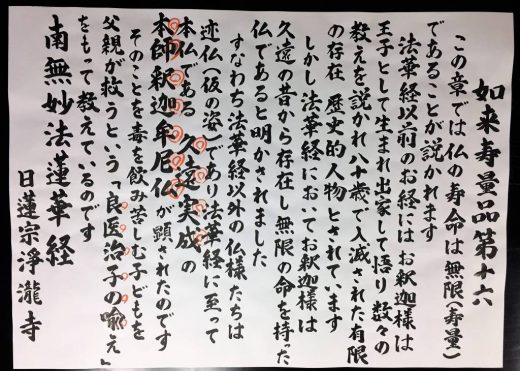 如来寿量品第十六
この章では仏の寿命は無限(寿量)
であることが説かれます
法華経以前のお経にはお釈迦様は
王子として生まれ出家して悟り数々の
教えを説かれ八十歳で入滅された有限
の存在 歴史的人物とされています
しかし法華経においてお釈迦様は
久遠の昔から存在し無限の命を持った
仏であると明かされました
すなわち法華経以外の仏様たちは
迹仏(仮の姿)であり法華経に至って
本仏である 久遠実成の
本師釈迦牟尼仏が顕されたのです
そのことを毒を飲み苦しむ子どもを
父親が救うという「良医治子の喩え」
をもって教えているのです
南無妙法蓮華経
日蓮宗淨瀧寺